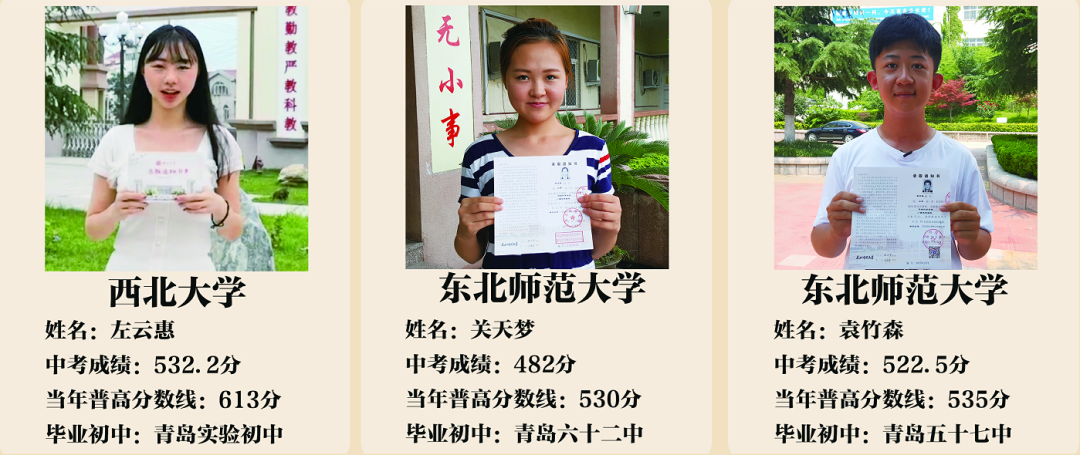 教勤教严教科教
无小事
录取通知书
录取通知书
西北大学
姓名：左云惠
中考成绩：532.2分
当年普高分数线：613分
毕业初中：青岛实验初中
东北师范大学
姓名：关天梦
中考成绩：482分
当年普高分数线：530分
毕业初中：青岛六十二中
东北师范大学
姓名：袁竹森
中考成绩：522.5分
当年普高分数线：535分
毕业初中：青岛五十七中